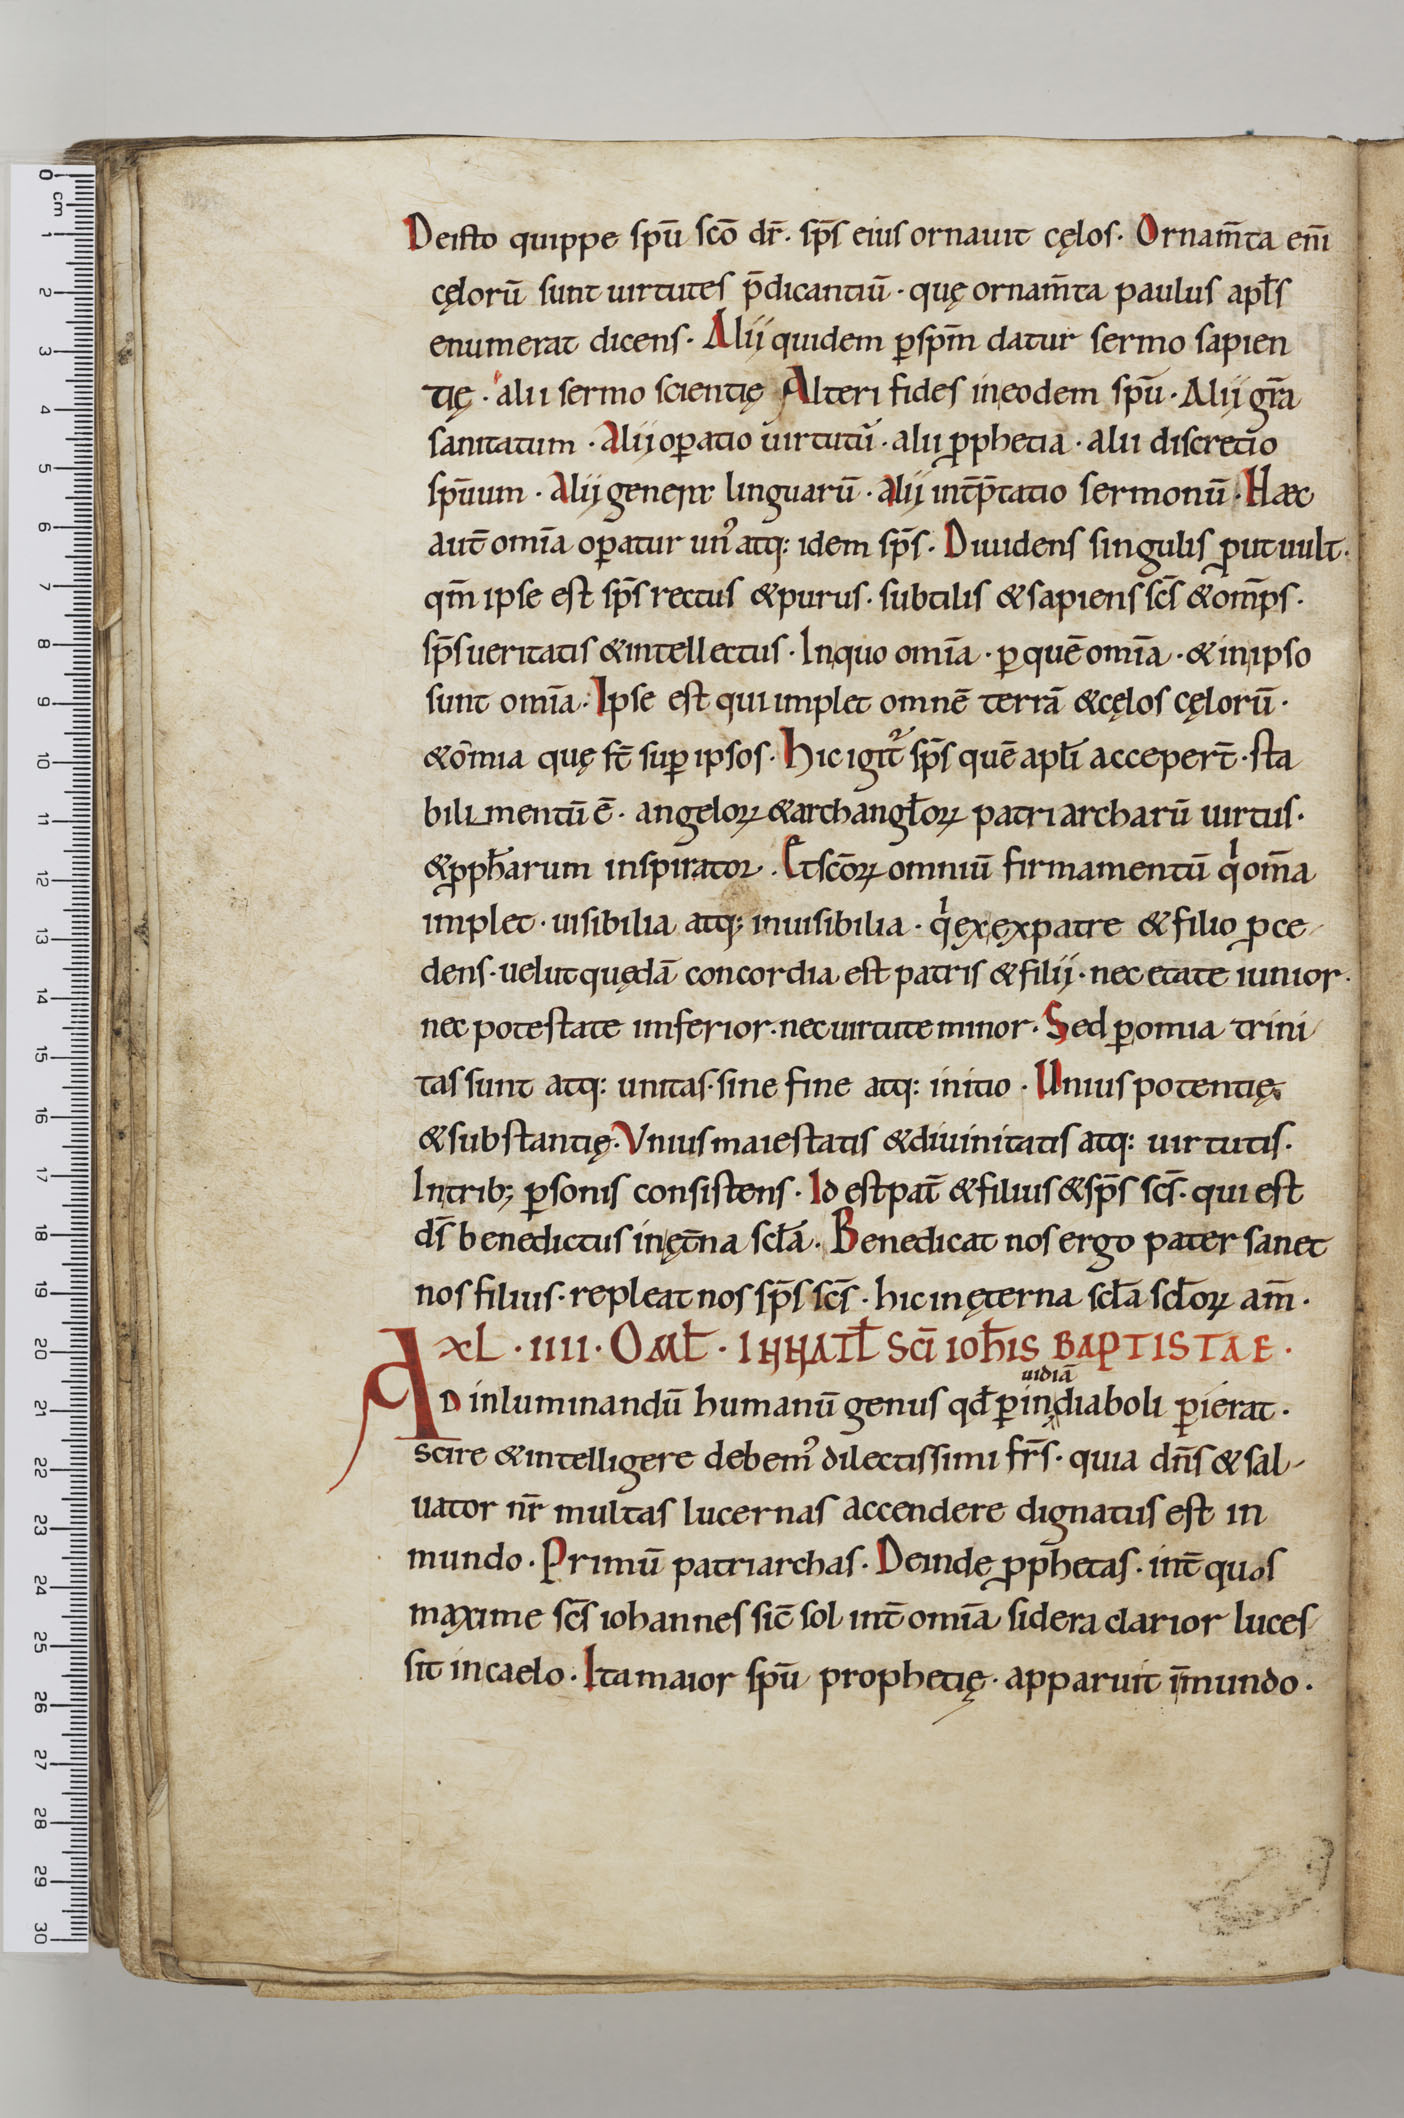 Deisto quippe spū scō dr̄. sp̄s eius ornauit cęlos. Ornam̄ta em̄
cęlorū sunt uirtutes p̄dicantiū. quę ornam̄ta paulus apłs
enumerat dicens. Alij quidem ꝑ sp̄m datur sermo sapien
tię. alii sermo scientię Alteri fides ineodem spū. Alij gr̄a
sanitatum. Alij oꝑatio uirtutū. alii ꝓphetia. alii discretio
spūum. Alij genera linguarū. alij int̄p̄tatio sermonū. Haec
aut̄ omīa oꝑatur unꝰ atq: idem sp̄s. Diuidens singulis ꝓut uult.
qm̄ ipse est sp̄s rectus &purus. subtilis &sapiens sc̄s &om̄ps.
sp̄s ueritatis &intellectus. Inquo omīa. ꝑ quē omīa. &inipso
sunt omīa. Ipse est qui implet omnē terrā &cęlos cęlorū.
&ōmia quę st̄ suꝑ ipsos. Hic igit̄ sp̄s quē apłi accepert̄. sta
bilimentū ē. angeloꝝ &archangłoꝝ patriarcharū uirtus.
&ꝓph̄arum inspirator. Et scōꝝ omniū firmamentū qͥ om̄a
implet. uisibilia atq; inuisibilia. qͥ ex expatre &filio ꝓce
dens. uelut quędā concordia est patris &filij. nec etate iunior.
nec potestate inferior. nec uirtute minor. Sed ꝑ omia trini
tas sunt atq: unitas. sine fine atq: initio. Unius potentię
&substantię. Vnius maiestatis &diuinitatis atq: uirtutis.
Intrib; ꝑsonis consistens. Id est pat̄ &filius &sp̄s sc̄s. qui est
ds̄ benedictus inęt̄na scła. Benedicat nos ergo pater sanet
nos filius. repleat nos sp̄s sc̄s. hic inęterna scła scłoꝝ am̄.
XL. IIII. OMŁ. IN NATŁ SCĪ IOH̄IS BAPTISTAE.
uidiā
AD inluminandū humanū genus qd̄ ꝑ in diaboli ꝑierat.
scire &intelligere debemꝰ dilectissimi frs̄. quia dn̄s &sal-
uator nr̄ multas lucernas accendere dignatus est in
mundo. Primū patriarchas. Deinde ꝓphetas. int̄ quos
maxime sc̄s iohannes sic̄ sol int̄ omīa sidera clarior luces
sit incaelo. Ita maior spū prophetię. apparuit īmundo.
0 cm
1
2
3
4
5
6
7
8
9
10
11
12
13
14
15
16
17
18
19
20
21
22
23
24
25
26
27
28
29
30